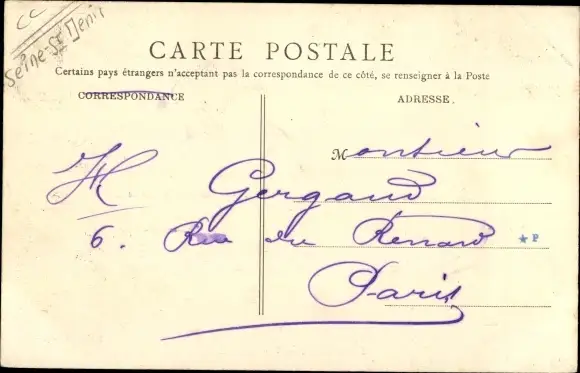 CC
Seine-St Denis
CARTE POSTALE
Certains pays étrangers n'acceptant pas la correspondance de ce côté, se renseigner à la Poste
CORRESPONDANCE
ADRESSE.
Monsieur
H Gergaud
6. Rue du Renard
★ P
Paris